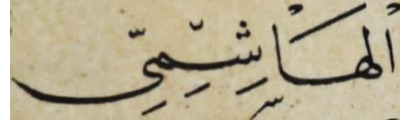 الهَاشِمِيّ